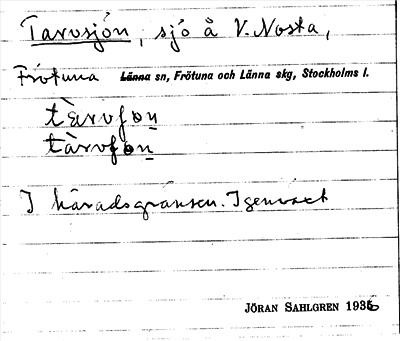 Tarvsjön, sjö å V. Nosta,
Frötuna Länna sn, Frötuna och Länna skg, Stockholms l.
I häradsgränsen. Igenväxt
JÖRAN SAHLGREN 1936